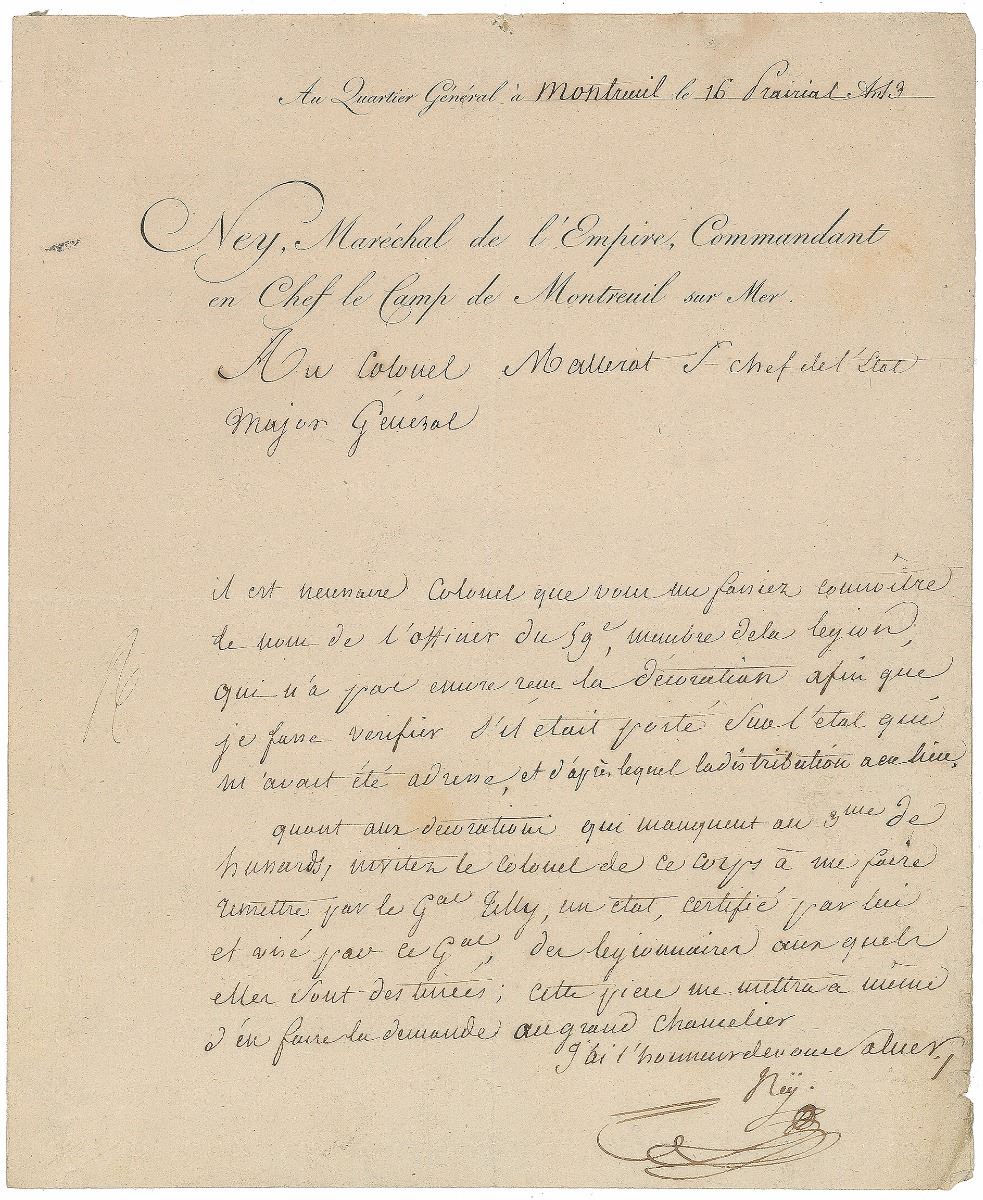 Au Quartier Général à Montreuil le 16 Prairial An 13
Ney, Maréchal de l'Empire, Commandant
en Chef le Camp de Montreuil sur Mer.
Au Colonel Mallerot Sr chef de l'Etat
Major Général
il est necessaire Colonel que vous me fassiez connoître
le nom de l'officier du 59e, membre dela legion,
qui n'a pas encore recu la décoration afin que
je fasse verifier s'il était porté sur l'etat qui
m'avait été adressé, et d'après lequel la distribution a eu lieu.
quant aux décorations qui manquent au 3me de
hussards, invitez le colonel de ce corps à me faire
remettre par le Gal Tilly, un état, certifié par lui
et visé par ce Gal, des legionnaires aux quels
elles sont destinées; cette piece me mettra à même
d'en faire la demande au grand chancelier
J'ai l'honneur de vous saluer,
Ney.